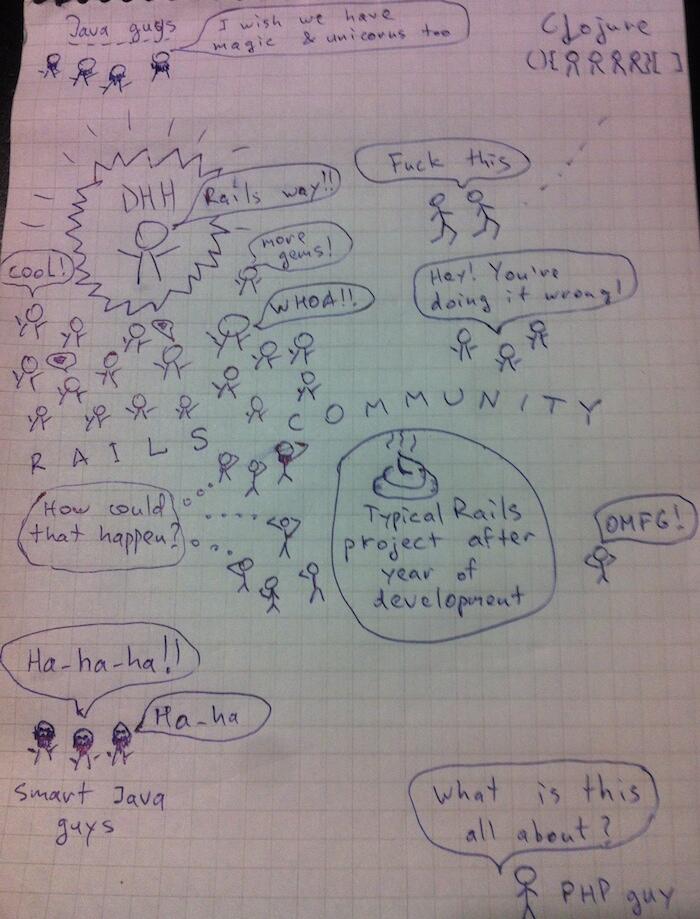 Java guys
I wish we have
magic & unicorns too
Clojure
(){ }[ ]
DHH
Rails way!!
Fuck this
more
gems!
cool!
WHOA!!
Hey! You're
doing it wrong!
RAILS COMMUNITY
How could
that happen?
Typical Rails
project after
year of
development
OMFG!
Ha-ha-ha!!
Ha-ha
Smart Java
guys
What is this
all about?
PHP guy